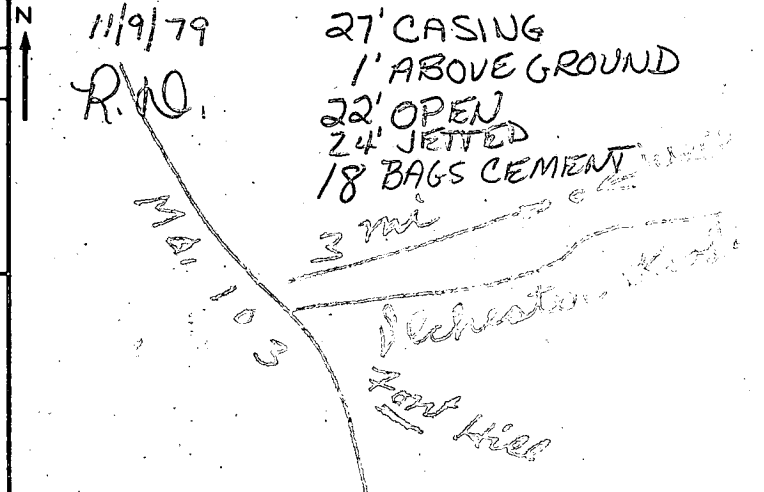 N
11/9/79
R.W.
27' CASING
1' ABOVE GROUND
22' OPEN
24' JETTED
18 BAGS CEMENT
3 mi
MD. 103
Ilchester
Hill